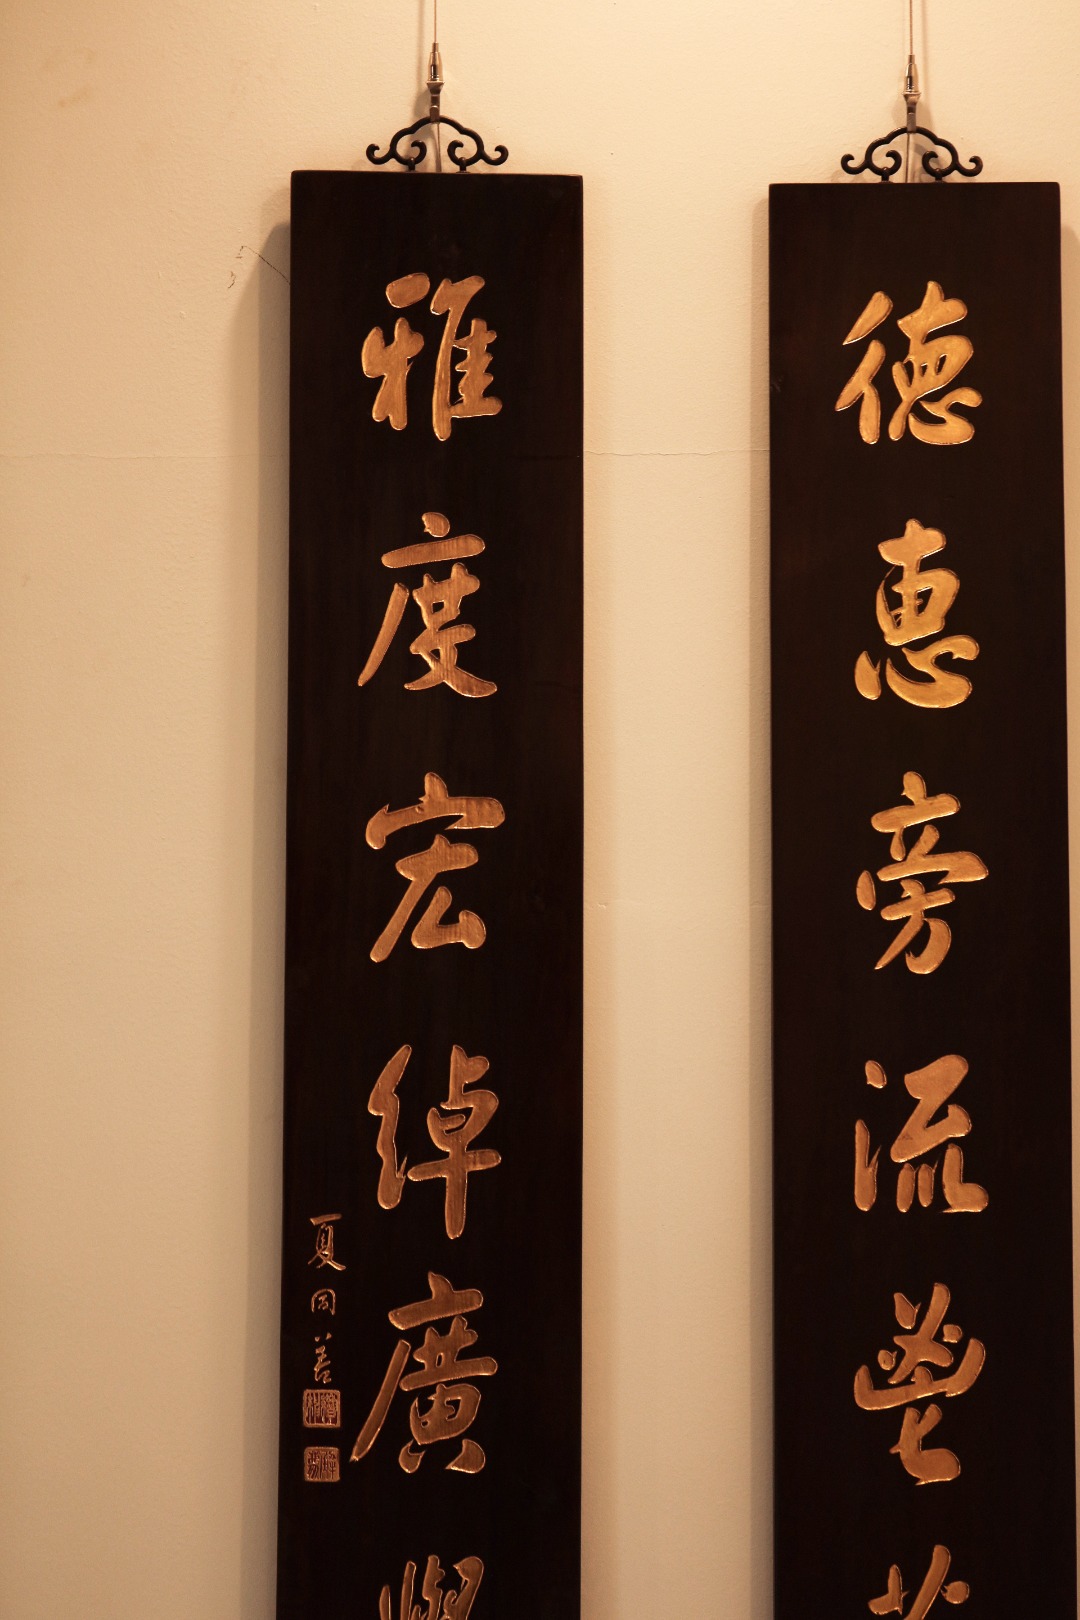 德惠旁流鬯
雅度宏綽廣
夏同善